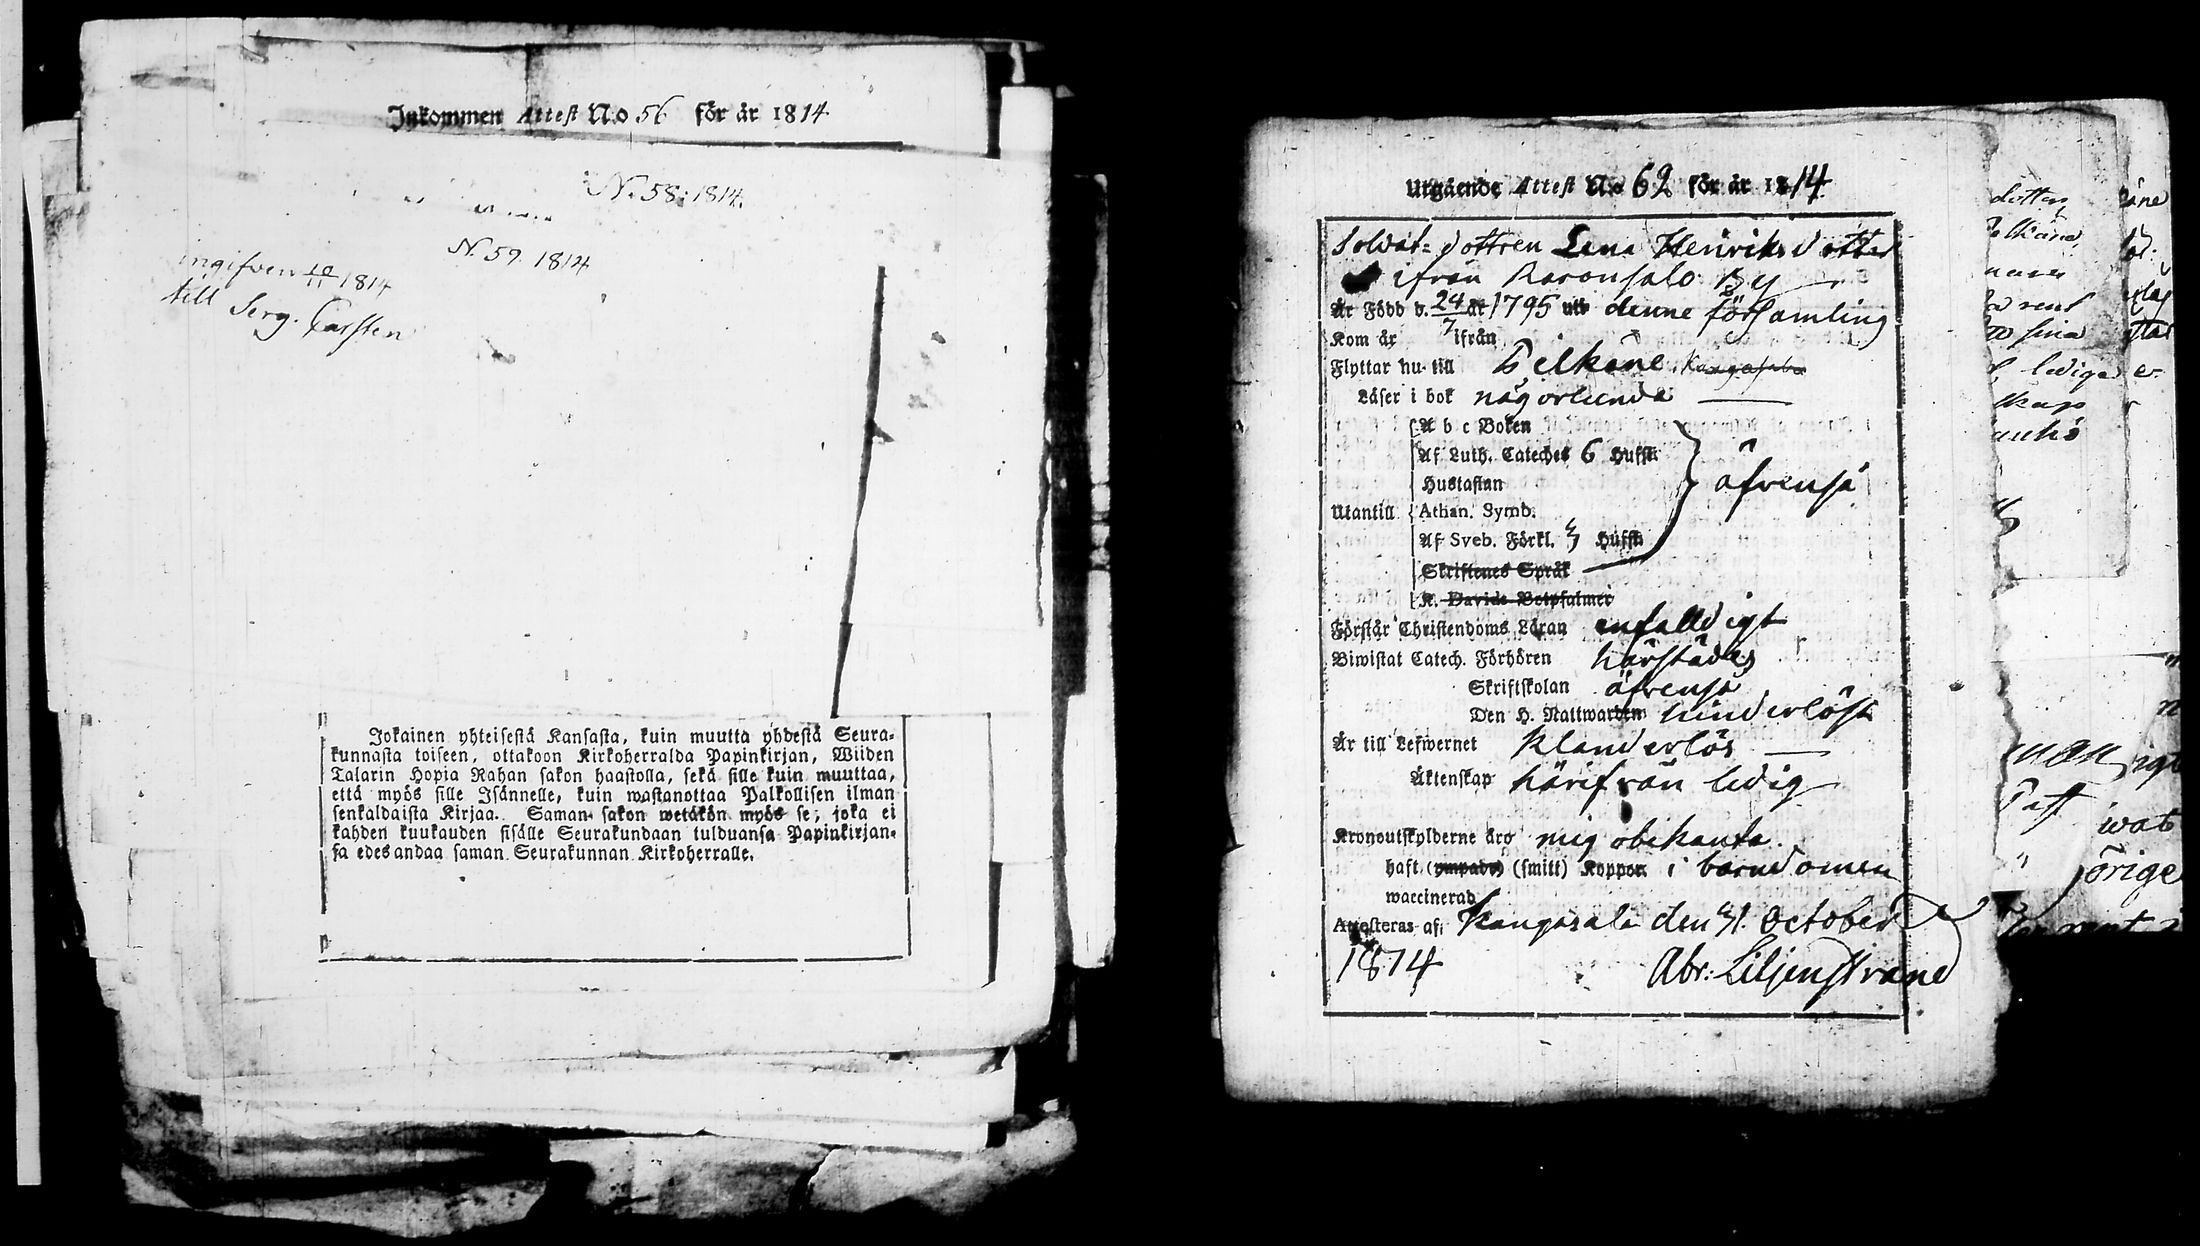 Inkommen Attest N:o 56 för år 1814
N. 58: 1814.
N. 59. 1814
ingifven 10/11 1814
till Serg. Carsten
Jokainen yhteisestä Kansasta, kuin muutta yhdestä Seura-
kunnasta toiseen, ottakoon Kirkoherralda Papinkirjan, Wiiden
Talarin Hopia Rahan sakon haastolla, sekä sille kuin muuttaa,
että myös sille Isännelle, kuin wastanottaa Palkollisen ilman
senkaldaista Kirjaa. Saman sakon wetäkön myös se, joka ei
kahden kuukauden sisälle Seurakundaan tulduansa Papinkirjan-
sa edesandaa saman Seurakunnan Kirkoherralle.
Utgående Attest N:o 62 för år 1814.
Soldat-dottren Lena Henriksdotter
ifrån Raronsalo By
Är Född d. 24/7 år 1795 uti denne församling
Kom år ifrån
Flyttar nu till Pelkäne. Kangasala
Läser i bok någorlunda
A b c Boken
Af Luth. Cateches 6 Hufst.
Hustaflan
äfvenså
Utantill Athan. Symb.
Af Sveb. Förkl. 3 Hufst.
Skriftenes Språk
K. Davids Botpsalmer
Förstår Christendoms Läran enfalldigt
Biwistat Catech. Förhören härstädes
Skriftskolan äfvenså
Den H. Nattwarden hinderlöst
Är till Lefwernet klanderlös
Äktenskap härifrån ledig
Kronoutskylderne äro mig obekanta.
haft (ympade) (smitt) Koppor i barndomen
waccinerad
Attesteras af: Kangasala den 31. October
1814 Abr: Liljenstrand
dotter
lediga
jörige